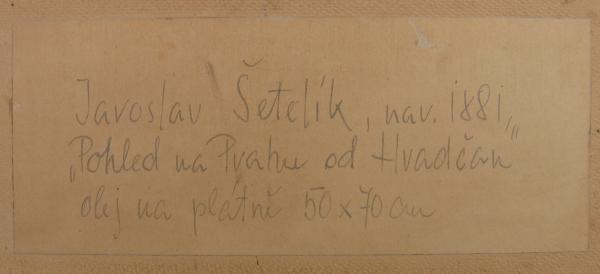 Jaroslav Šetelík, nar. 1881,
„Pohled na Prahu od Hradčan"
olej na plátně 50x70cm